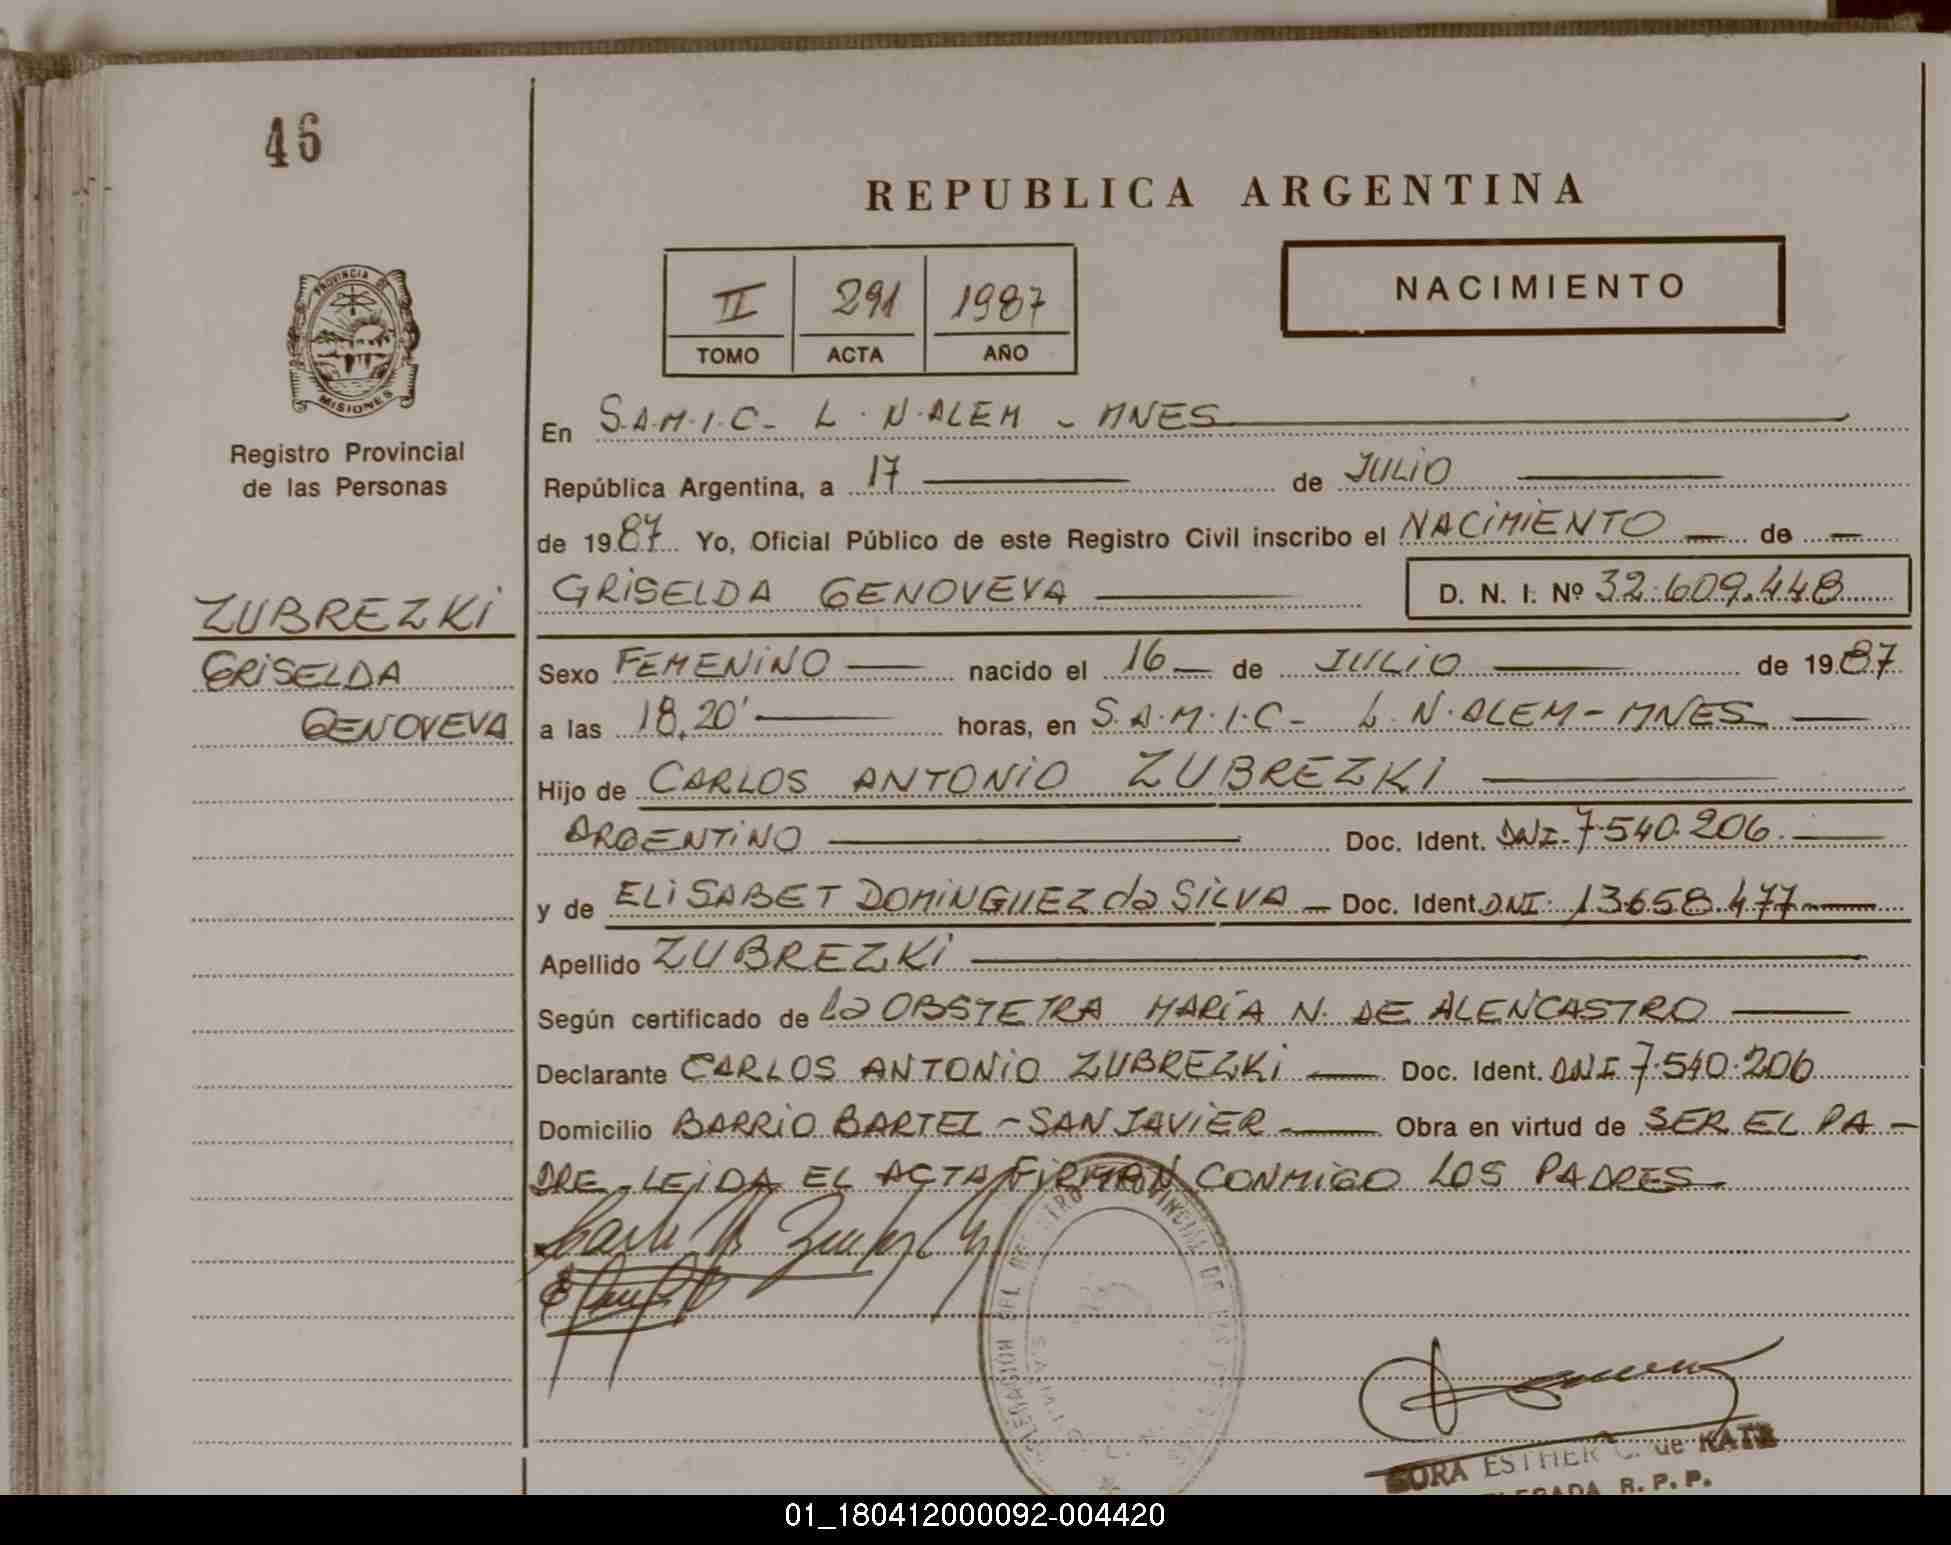 46
REPUBLICA ARGENTINA
II 291 1987
TOMO ACTA AÑO
NACIMIENTO
PROVINCIA DE
MISIONES
Registro Provincial
de las Personas
ZUBREZKI
GRISELDA
GENOVEVA
En S.A.M.I.C- L. N. ALEM - MNES
República Argentina, a 17 de JULIO
de 1987 Yo, Oficial Público de este Registro Civil inscribo el NACIMIENTO — de —
GRISELDA GENOVEVA — D. N. I. Nº 32.609.448
Sexo FEMENINO — nacido el 16 — de JULIO — de 1987
a las 18,20' — horas, en S.A.M.I.C- L. N. ALEM - MNES —
Hijo de CARLOS ANTONIO ZUBREZKI —
ARGENTINO — Doc. Ident. DNI- 7.540.206. —
y de ELISABET DOMINGUEZ da SILVA — Doc. Ident. DNI. 13.658.477 —
Apellido ZUBREZKI —
Según certificado de la OBSTETRA MARÍA N. DE ALENCASTRO —
Declarante CARLOS ANTONIO ZUBREZKI — Doc. Ident. DNI 7.540.206
Domicilio BARRIO BARTEL - SAN JAVIER — Obra en virtud de SER EL PA-
DRE - LEIDA EL ACTA FIRMAN CONMIGO LOS PADRES.
ESTHER C. de KATZ
R. P. P.
01_180412000092-004420